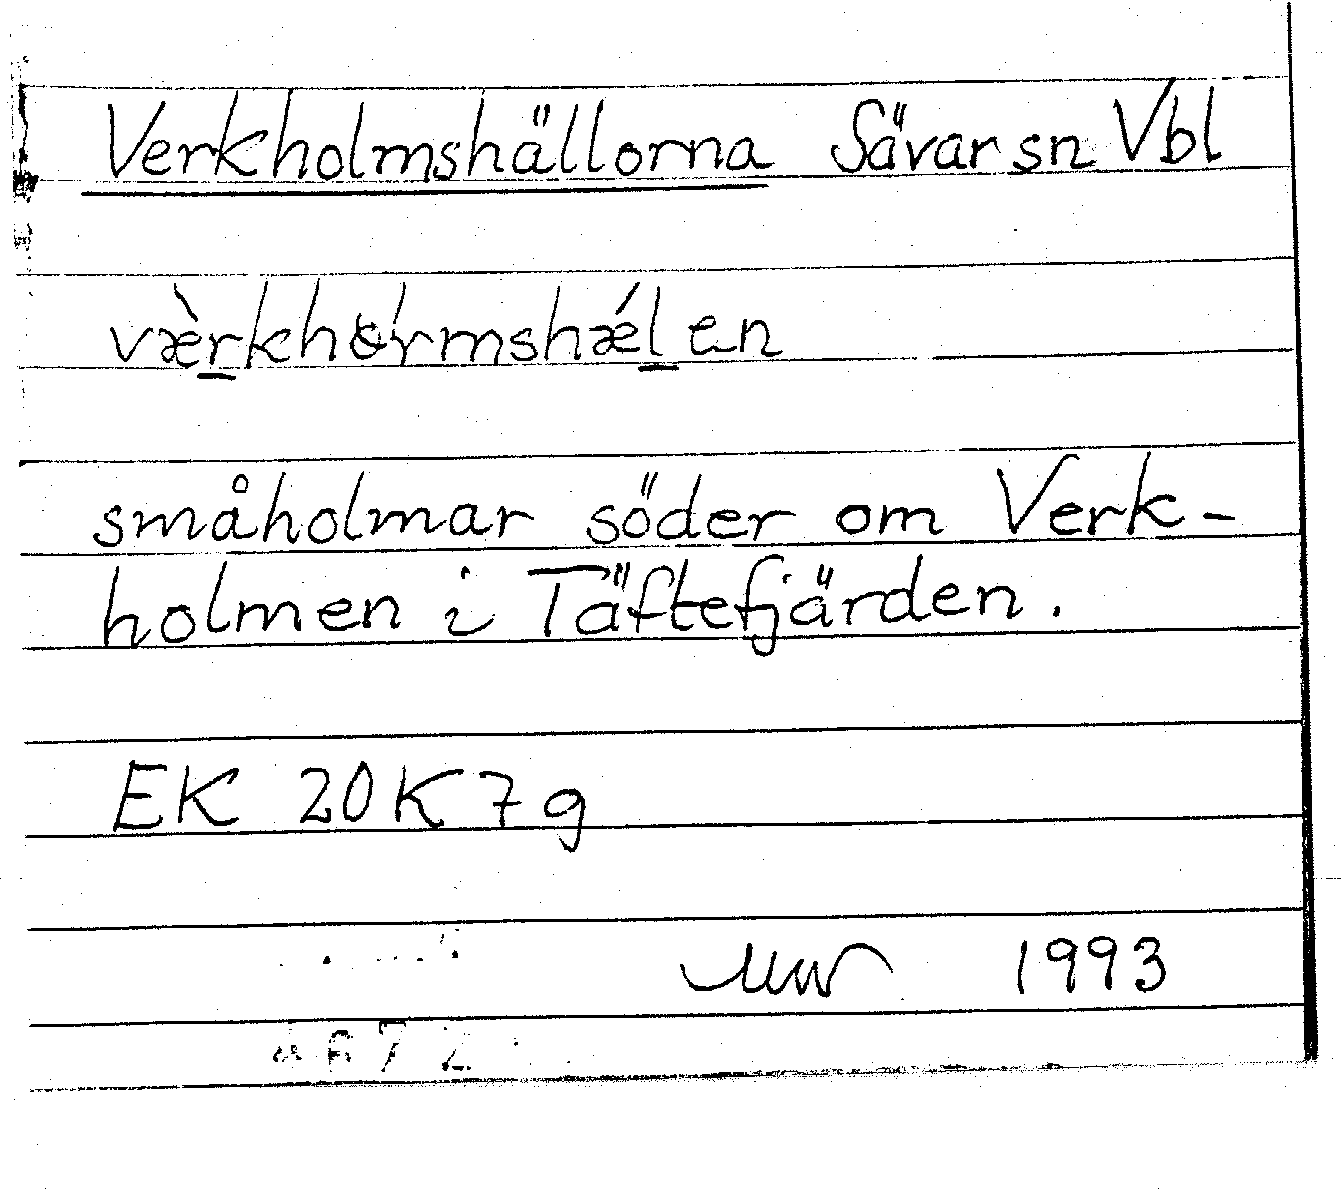 Verkholmshällorna Sävar sn Vbl
småholmar söder om Verk-
holmen i Täftefjärden.
EK 20K7g
1993